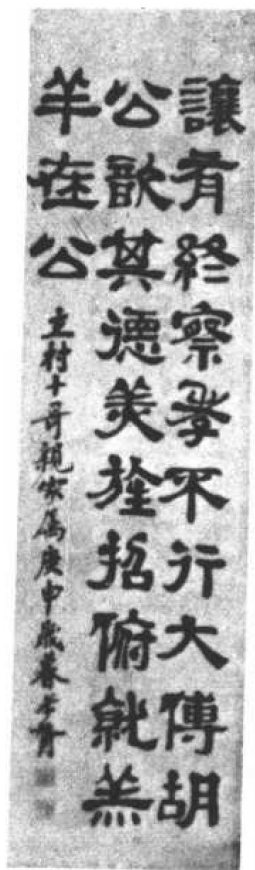 讓有終察孝不行大傅胡
公歆其德美旌招俯就羔
羊在公
村十哥親家属庚申歲暮